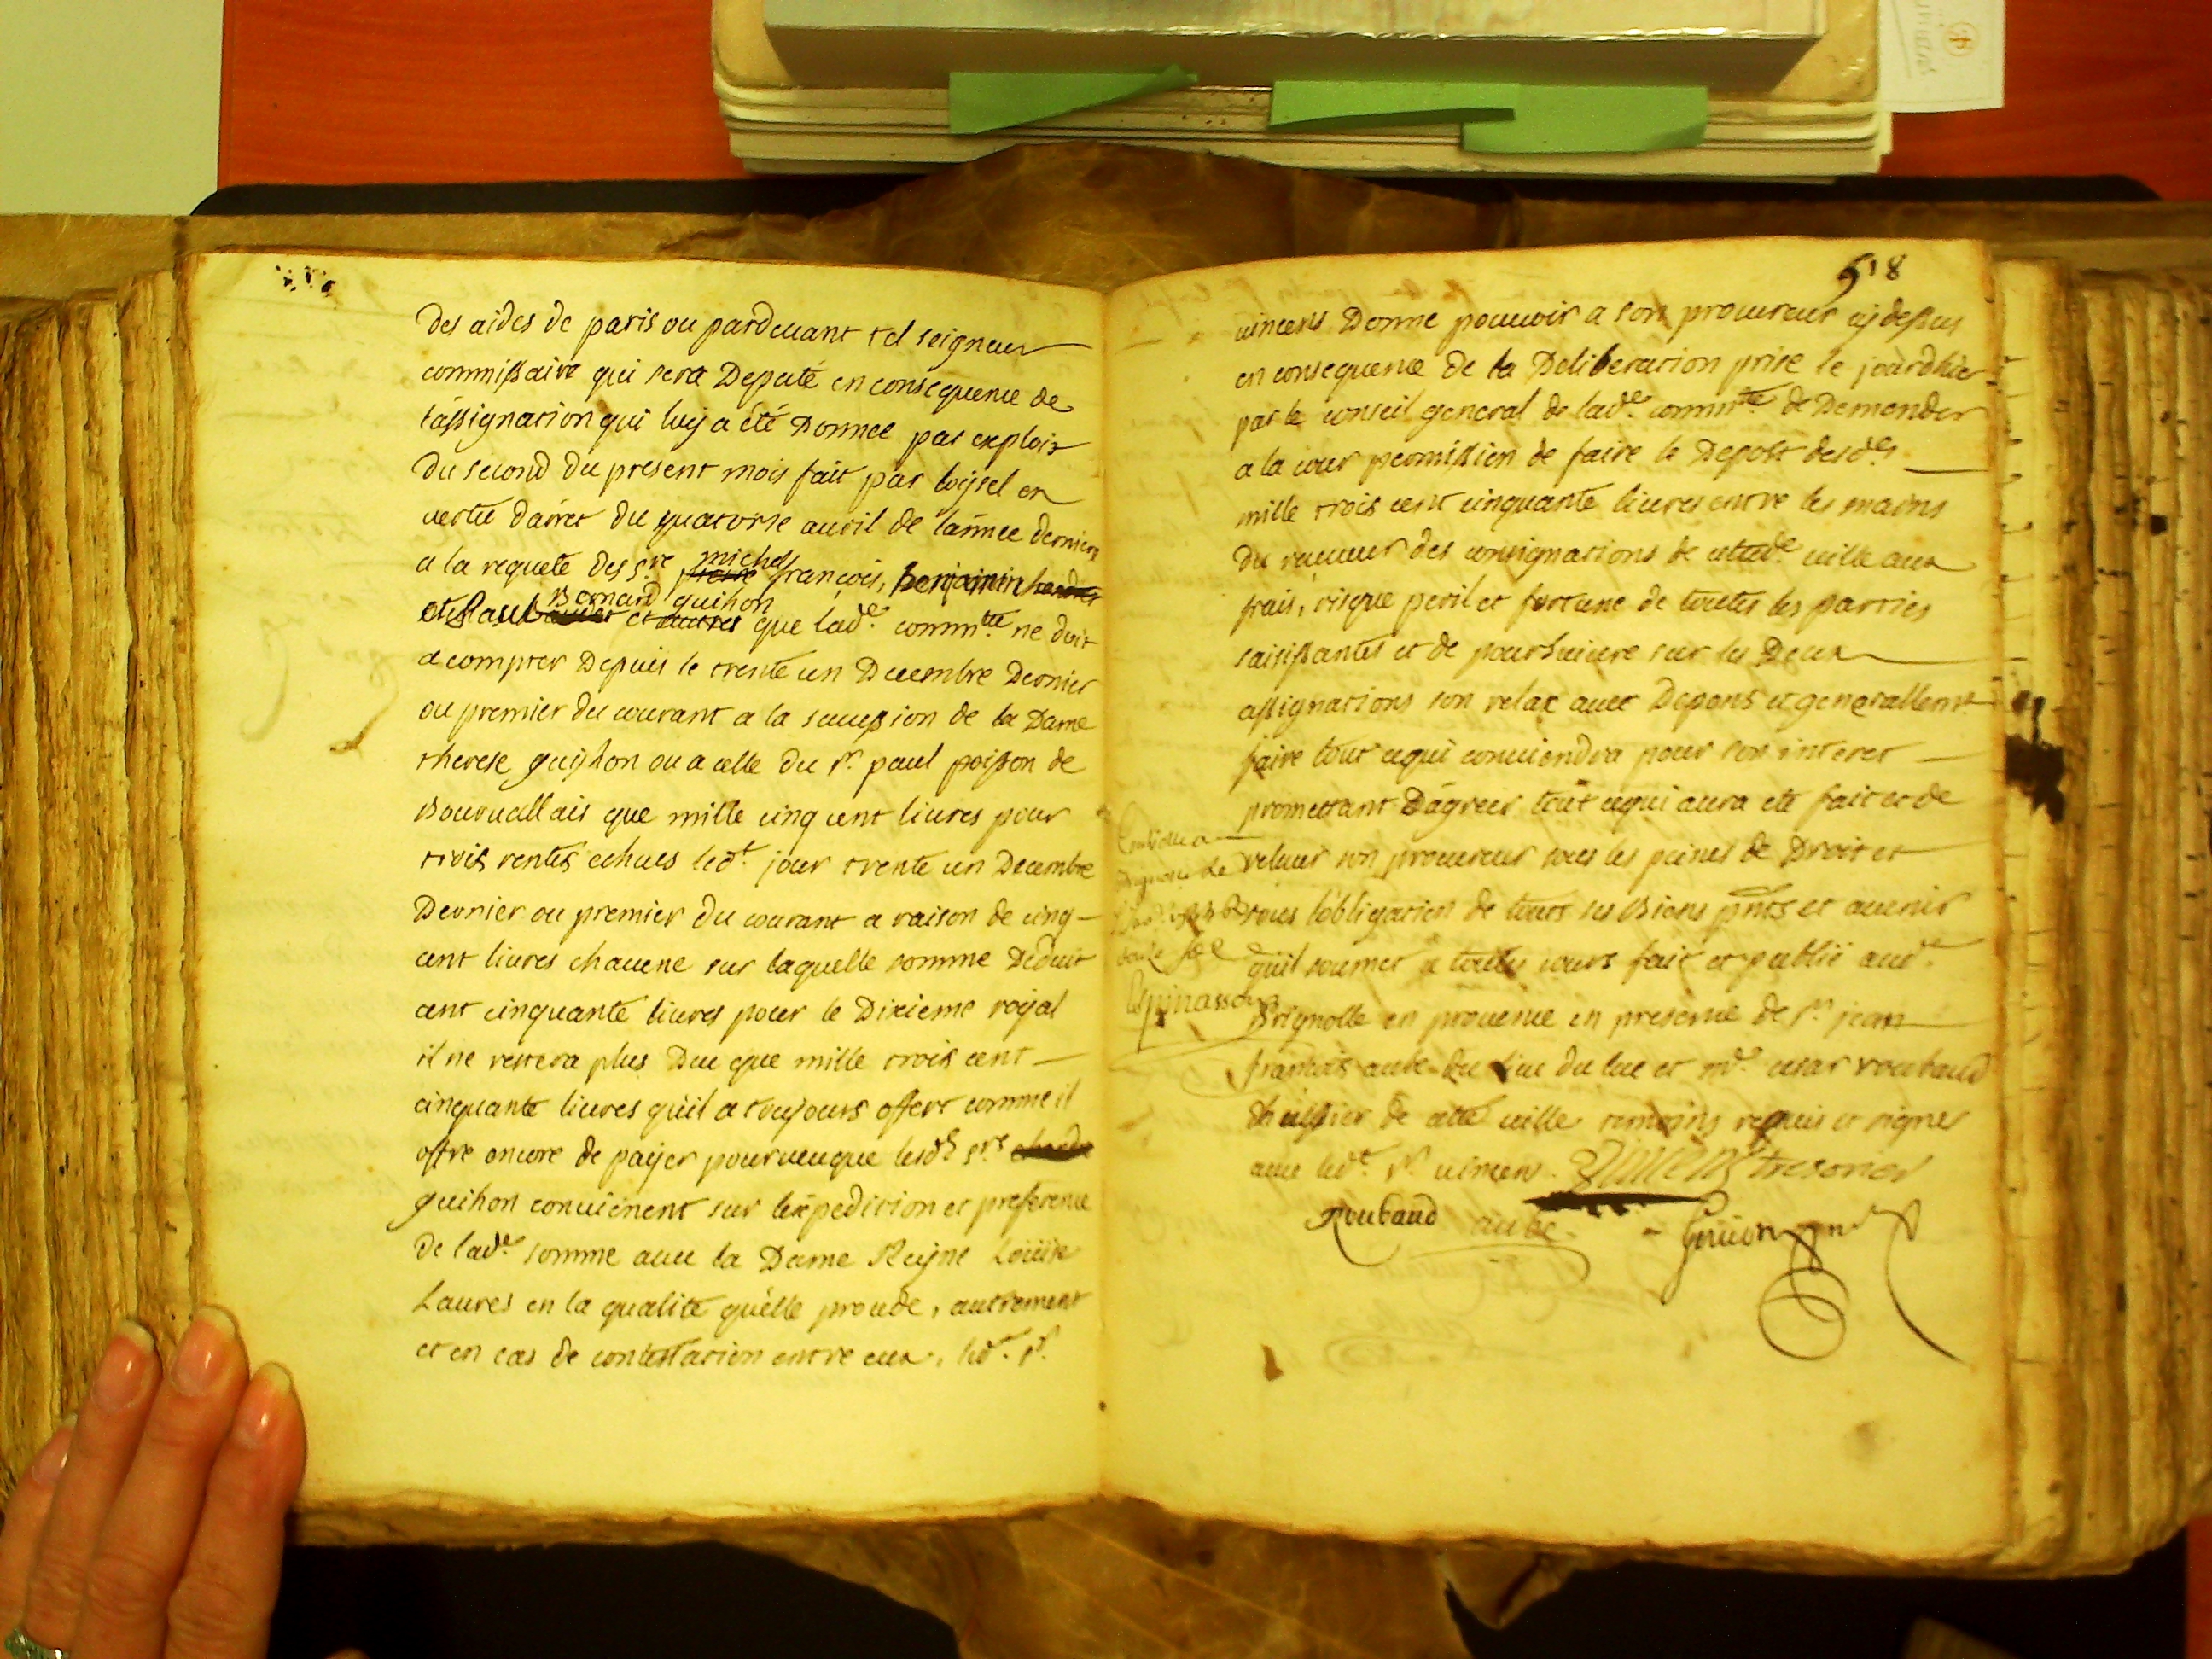 des aides de paris ou pardeuant tel seigneur
commissaire qui sera Deputé en consequence de
l'assignation qui luy a été Donnee par exploit
du second du present mois fait par loysel en
uertu d'arret du quatorse auril de l'année derniere
a la requete des srs pierre michel françois, benjamin
et Paul Bernard guihon et autres que lade. commté. ne doit
a compter Depuis le trente un Decembre Dernier
ou premier du courant a la succession de la Dame
therese guihon ou a celle du sr. paul poisson de
Bouruallais que mille cinq cent liures pour
trois rentes echues ledt. jour trente un Decembre
Dernier ou premier du courant a raison de cinq
cent liures chacune sur laquelle somme Deduit
cent cinquante liures pour le Dixieme royal
il ne restera plus Deu que mille trois cent
cinquante liures qu'il a toujours offert comme il
offre encore de payer pourueuque lesds. srs
guihon conuienent sur l'expedition et preference
de lade. somme auec la Dame Reyne Louise
Laures en la qualité qu'elle procede, autrement
et en cas de contestation entre eux, ledt. sr.
518
uincens Donne pouuoir a son procureur cy dessus
en consequence de la Deliberation prise le jourdhier
par le conseil general de lade. commté. de Demander
a la cour permission de faire le Depost desds.
mille trois cent cinquante liures entre les mains
du receueur des consignations de uille aux
frais, risque peril et fortune de toutes les parties
saisissantes et de poursuiure sur les Deux
assignations son relax auec Depens et generallemt.
faire tout cequi conuiendra pour son interet
promettant D'agréer tout cequi aura été fait et de
releuer son procureur sous les peines de Droit et
sous l'obligation de tous ses Biens pnts et auenir
qu'il soumet a toutes cours fait et publié aud.
Brignolle en prouence en presence de sr. jean
francois aube du lieu du luc et me. cesar roubaud
huissier de cette uille temoins requis et signes
auec ledt. sr. uincens. Vincens tresorier
Roubaud aube
Espinassou